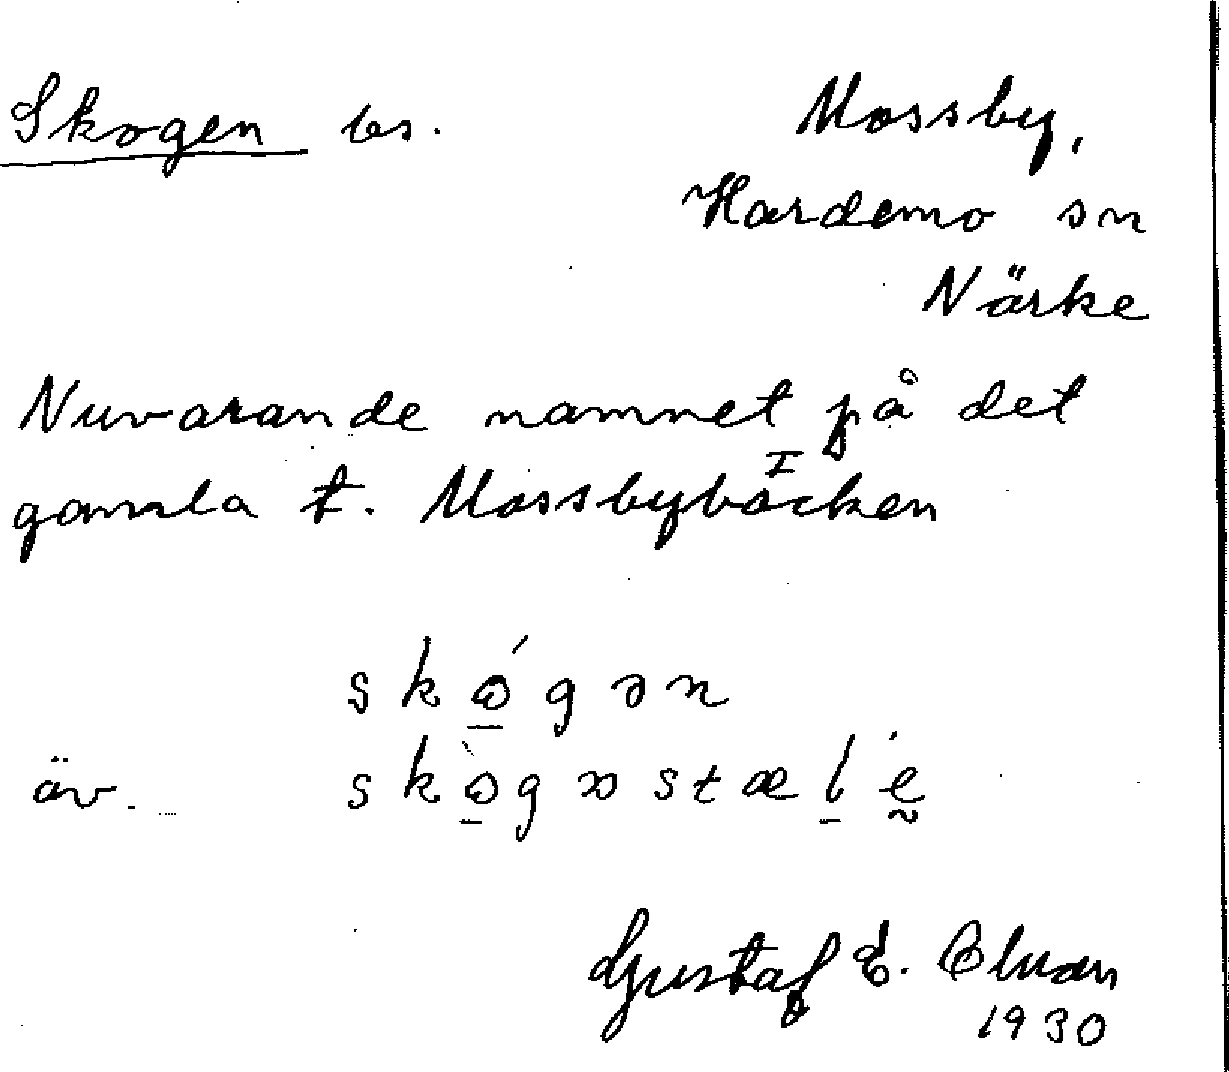 Skogen bs. Mossby,
Hardemo sn
Närke
Nuvarande namnet på det
gamla t. Mossbybäcken
I
skǫ́gən
äv. skǫ̀gɷstæl̠e
Gustaf E.
1930